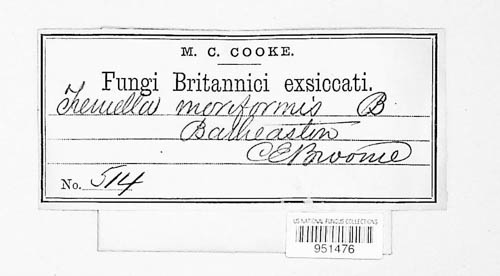 M. C. COOKE.
Fungi Britannici exsiccati.
Tremella moriformis B
Batheaston
C E Broome
No. 514
US NATIONAL FUNGUS COLLECTIONS
951476